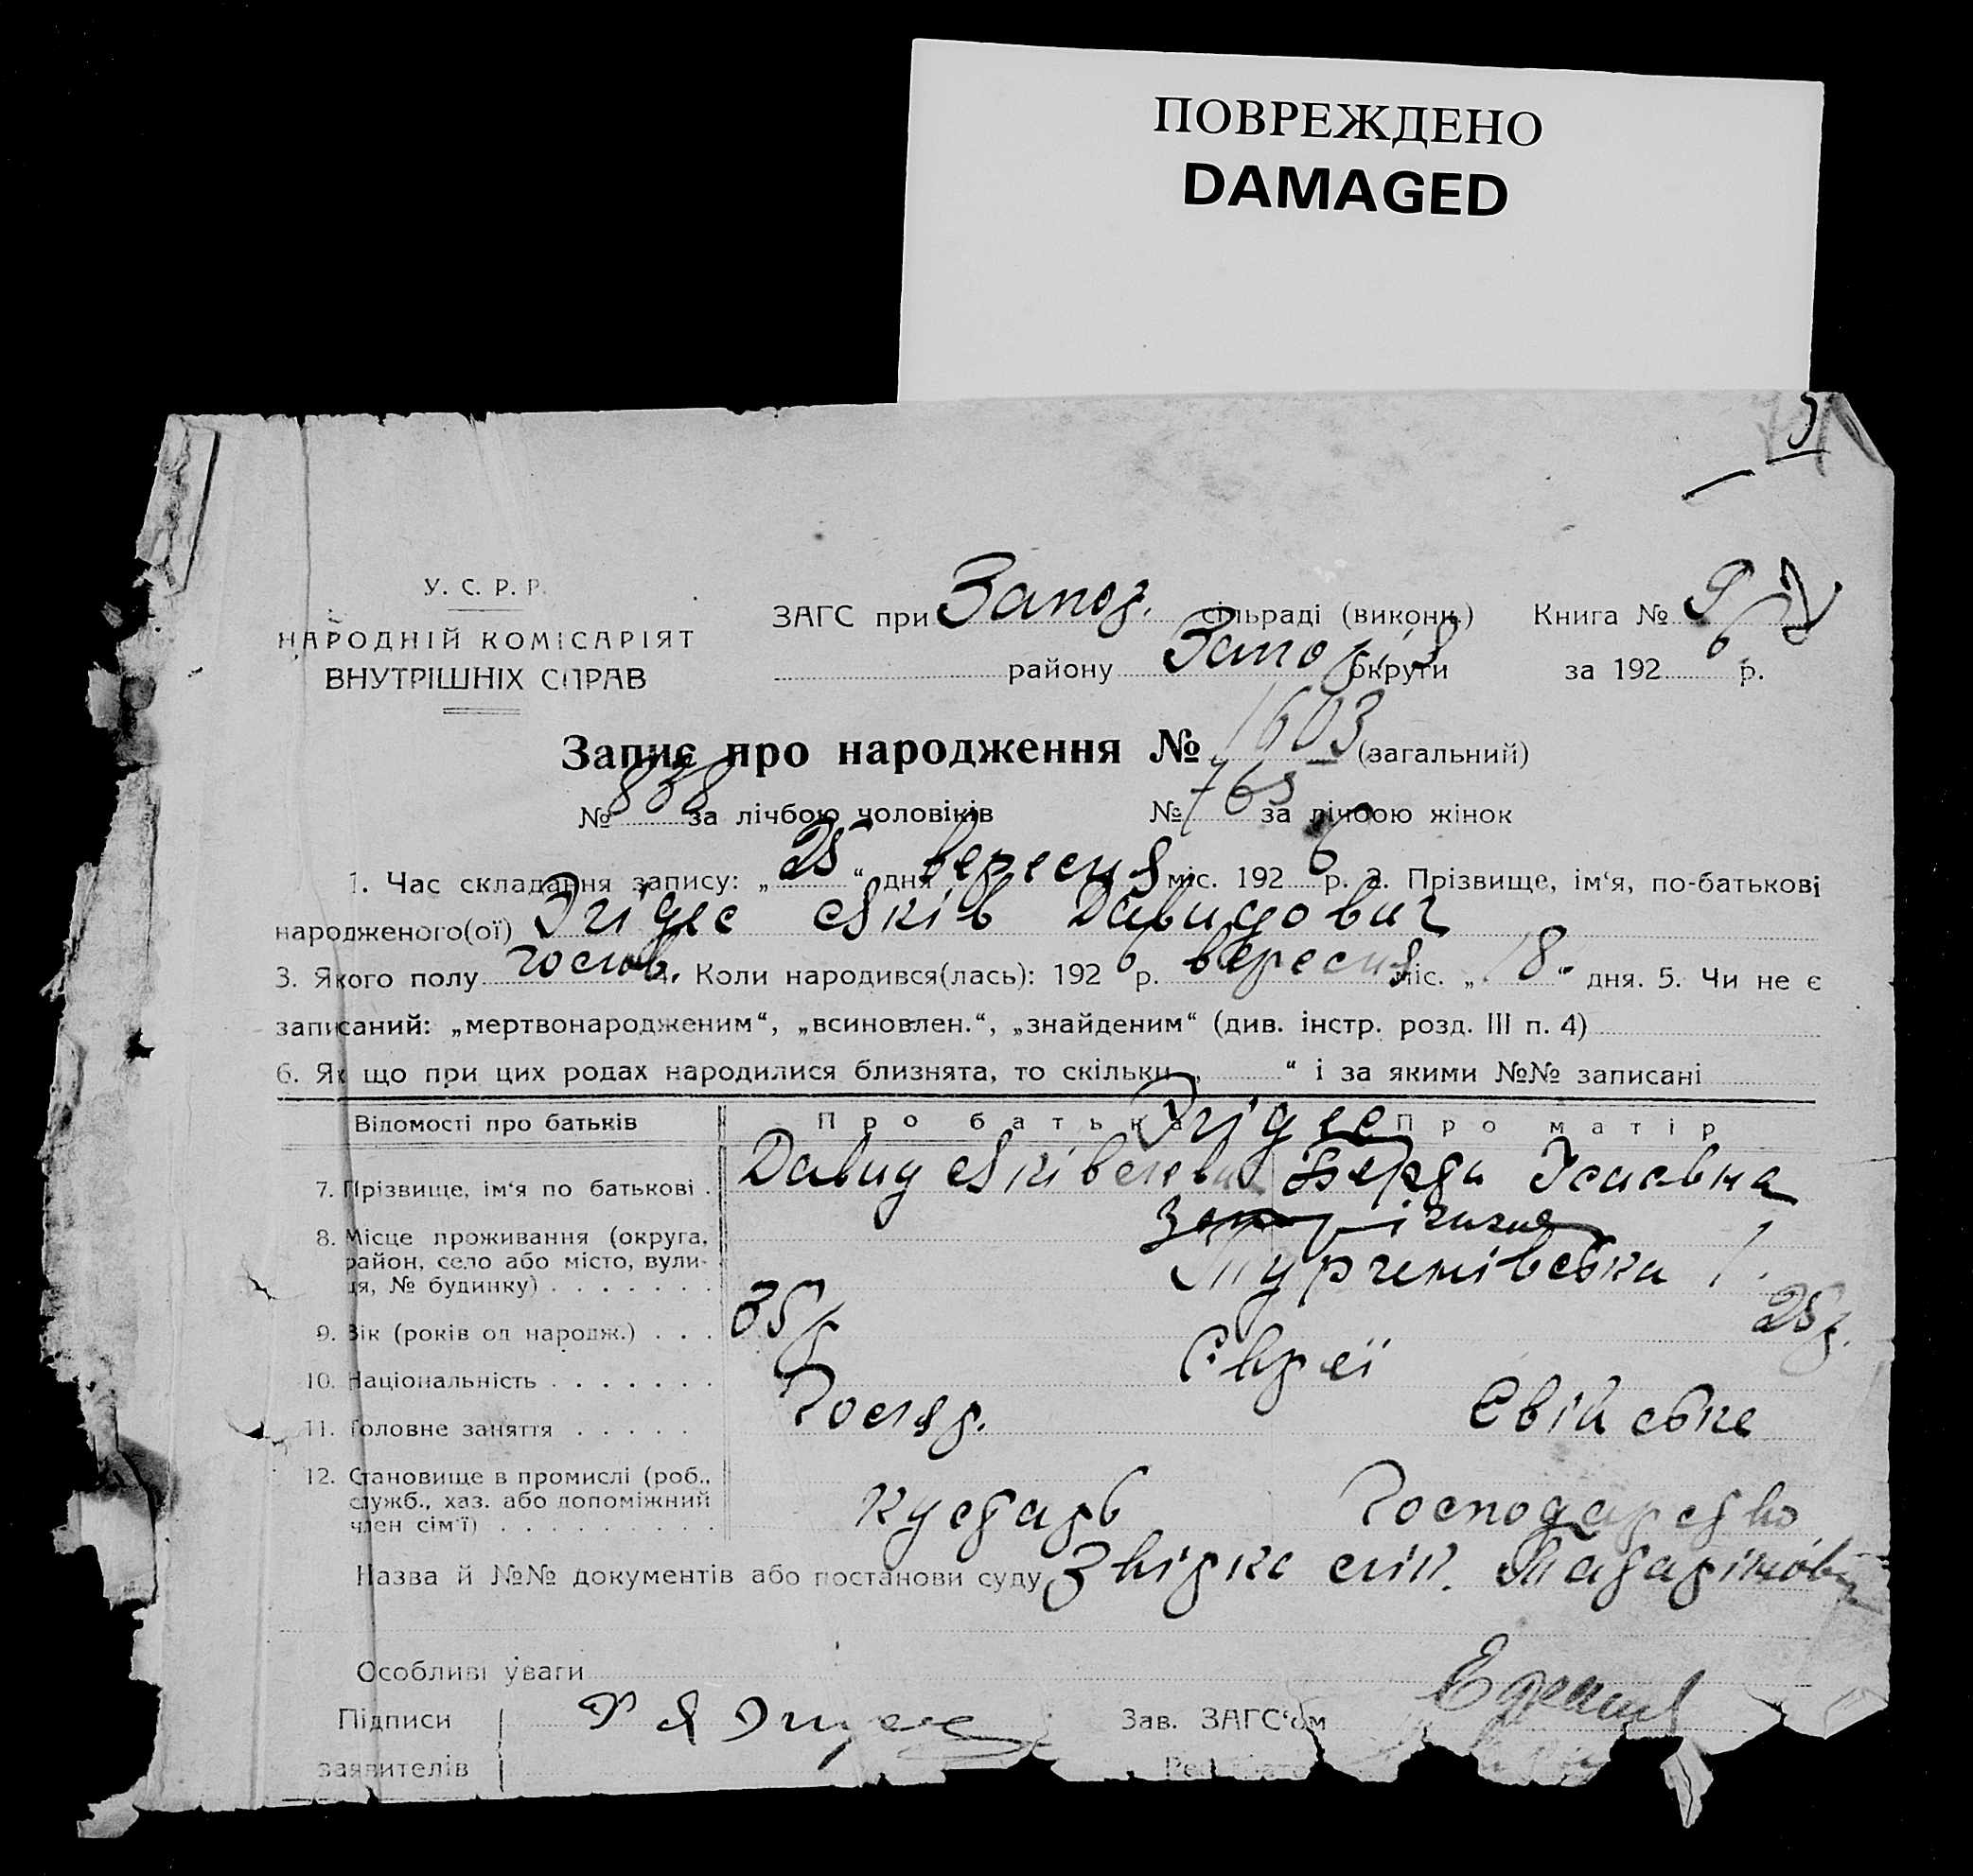 ПОВРЕЖДЕНО
DAMAGED
У. С. Р. Р.
НАРОДНІЙ КОМІСАРІЯТ
ВНУТРІШНІХ СПРАВ
ЗАГС при Запор. сільраді (викони.) Книга № 9
району Запоріз округи за 1926 р.
Запис про народження № 1603 (загальний)
№ 838 за лічбою чоловіків № 765 за лічбою жінок
1. Час складання запису: „25“ дня вересня міс. 1926 р. 2. Прізвище, ім‘я, по-батькові
народженого(ої) Яків Давидович
3. Якого полу чолов. 4. Коли народився(лась): 1926 р. вересня міс. „18“ дня. 5. Чи не є
записаний: „мертвонародженим“, „всиновлен.“, „знайденим“ (див. інстр. розд. III п. 4)
6. Як що при цих родах народилися близнята, то скільки „ “ і за якими №№ записані
Відомості про батьків Про батька Про матір
7. Прізвище, ім‘я по батькові . Давид Яківелевич Берта Ісаєвна
8. Місце проживання (округа, район, село або місто, вулиця, № будинку) . . . . . . . Запоріжжя
Тургенівська 1.
9. Вік (років од народж.) . . . 35 р. 25 р.
10. Національність . . . . . . . Євреї
11. Головне заняття . . . . . Свійське
12. Становище в промислі (роб., служб., хаз. або допоміжний член сім‘ї) . . . . . . . . . кустарь Господарство
Назва й №№ документів або постанови суду
Особливі уваги
Підписи
заявителів
Зав. ЗАГС‘ом